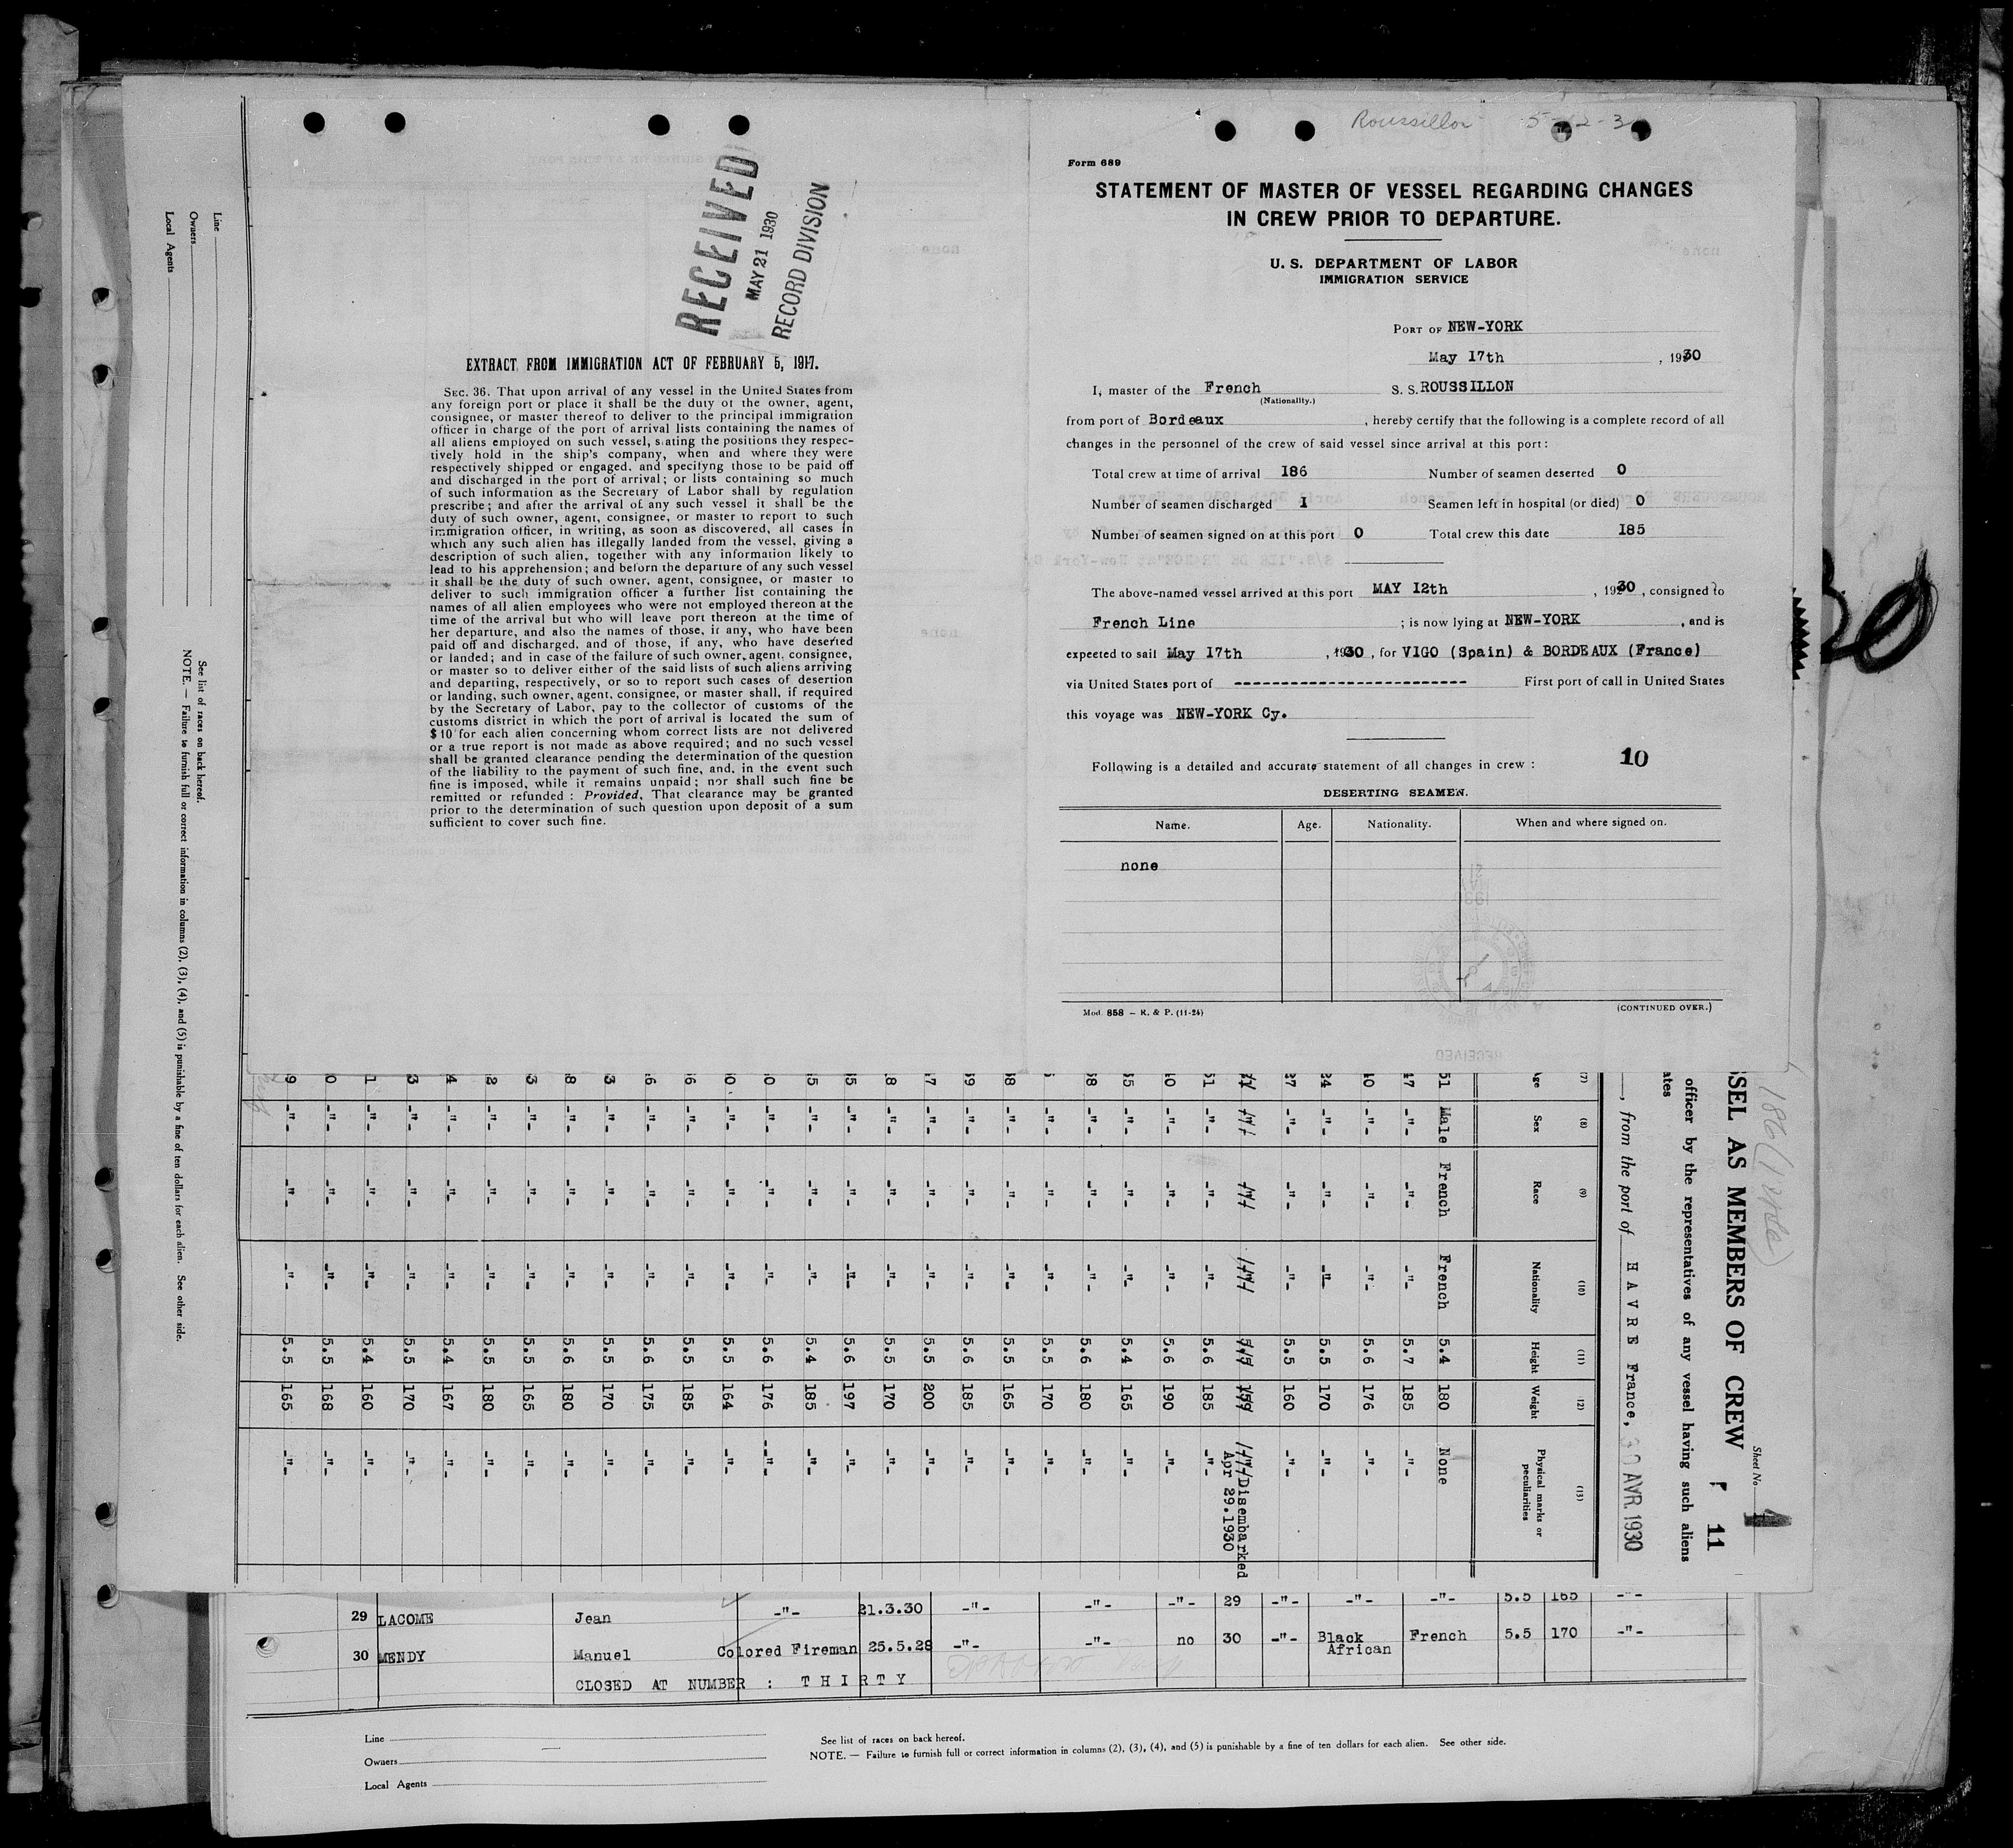 Roussillon 5-12-3
Form 689
STATEMENT OF MASTER OF VESSEL REGARDING CHANGES
IN CREW PRIOR TO DEPARTURE.
U. S. DEPARTMENT OF LABOR
IMMIGRATION SERVICE
PORT OF NEW-YORK
May 17th , 1930
I, master of the French S. S. ROUSSILLON
(Nationality.)
from port of Bordeaux , hereby certify that the following is a complete record of all
changes in the personnel of the crew of said vessel since arrival at this port:
Total crew at time of arrival 186 Number of seamen deserted 0
Number of seamen discharged 1 Seamen left in hospital (or died) 0
Number of seamen signed on at this port 0 Total crew this date 185
The above-named vessel arrived at this port MAY 12th , 1930 , consigned to
French Line ; is now lying at NEW-YORK , and is
expected to sail May 17th , 1930 , for VIGO (Spain) & BORDEAUX (France)
via United States port of ------------------------- First port of call in United States
this voyage was NEW-YORK Cy.
Following is a detailed and accurate statement of all changes in crew : 10
DESERTING SEAMEN.
Name. Age. Nationality. When and where signed on.
none
Mod. 858 — R. & P. (11-24) (CONTINUED OVER.)
RECEIVED
MAY 21 1930
RECORD DIVISION
EXTRACT FROM IMMIGRATION ACT OF FEBRUARY 5, 1917.
SEC. 36. That upon arrival of any vessel in the United States from
any foreign port or place it shall be the duty of the owner, agent,
consignee, or master thereof to deliver to the principal immigration
officer in charge of the port of arrival lists containing the names of
all aliens employed on such vessel, stating the positions they respec-
tively hold in the ship's company, when and where they were
respectively shipped or engaged, and specifyng those to be paid off
and discharged in the port of arrival; or lists containing so much
of such information as the Secretary of Labor shall by regulation
prescribe; and after the arrival of any such vessel it shall be the
duty of such owner, agent, consignee, or master to report to such
immigration officer, in writing, as soon as discovered, all cases in
which any such alien has illegally landed from the vessel, giving a
description of such alien, together with any information likely to
lead to his apprehension; and beforn the departure of any such vessel
it shall be the duty of such owner, agent, consignee, or master to
deliver to such immigration officer a further list containing the
names of all alien employees who were not employed thereon at the
time of the arrival but who will leave port thereon at the time of
her departure, and also the names of those, if any, who have been
paid off and discharged, and of those, if any, who have deserted
or landed; and in case of the failure of such owner, agent, consignee,
or master so to deliver either of the said lists of such aliens arriving
and departing, respectively, or so to report such cases of desertion
or landing, such owner, agent, consignee, or master shall, if required
by the Secretary of Labor, pay to the collector of customs of the
customs district in which the port of arrival is located the sum of
$10 for each alien concerning whom correct lists are not delivered
or a true report is not made as above required; and no such vessel
shall be granted clearance pending the determination of the question
of the liability to the payment of such fine, and, in the event such
fine is imposed, while it remains unpaid; nor shall such fine be
remitted or refunded : Provided, That clearance may be granted
prior to the determination of such question upon deposit of a sum
sufficient to cover such fine.
Sheet No 1
SSEL AS MEMBERS OF CREW 11
officer by the representatives of any vessel having such aliens
ates
, from the port of HAVRE France, 30 AVR. 1930
(7) (8) (9) (10) (11) (12) (13)
ge Sex Race Nationality Height Weight Physical marks or peculiarities
51 Male French French 5.4 180 None
47 -"- -"- -"- 5.7 185 -"-
40 -"- -"- -"- 5.6 176 -"-
24 -"- -"- -"- 5.5 170 -"-
27 -"- -"- -"- 5.5 160 -"-
Disembarked
Apr 29.1930
51 -"- -"- -"- 5.6 185 -"-
40 -"- -"- -"- 5.6 190 -"-
35 -"- -"- -"- 5.4 165 -"-
38 -"- -"- -"- 5.6 180 -"-
-"- -"- -"- 5.5 170 -"-
38 -"- -"- -"- 5.5 165 -"-
39 -"- -"- -"- 5.6 185 -"-
7 -"- -"- -"- 5.5 200 -"-
8 -"- -"- -"- 5.5 170 -"-
5 -"- -"- -"- 5.6 197 -"-
5 -"- -"- -"- 5.4 185 -"-
0 -"- -"- -"- 5.6 176 -"-
0 -"- -"- -"- 5.5 164 -"-
6 -"- -"- -"- 5.5 185 -"-
6 -"- -"- -"- 5.6 175 -"-
3 -"- -"- -"- 5.5 170 -"-
8 -"- -"- -"- 5.6 180 -"-
3 -"- -"- -"- 5.5 165 -"-
2 -"- -"- -"- 5.5 180 -"-
4 -"- -"- -"- 5.4 167 -"-
3 -"- -"- -"- 5.5 170 -"-
1 -"- -"- -"- 5.4 160 -"-
0 -"- -"- -"- 5.5 168 -"-
9 -"- -"- -"- 5.5 165 -"-
Line
Owners
Local Agents
See list of races on back hereof.
NOTE. — Failure to furnish full or correct information in columns (2), (3), (4), and (5) is punishable by a fine of ten dollars for each alien. See other side.
29 LACOME Jean -"- 21.3.30 -"- -"- -"- 29 -"- -"- -"- 5.5 165 -"-
30 MENDY Manuel Colored Fireman 25.5.28 -"- -"- no 30 -"- Black African French 5.5 170 -"-
CLOSED AT NUMBER : THIRTY
Line
Owners
Local Agents
See list of races on back hereof.
NOTE. — Failure to furnish full or correct information in columns (2), (3), (4), and (5) is punishable by a fine of ten dollars for each alien. See other side.